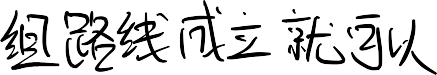 组路线成立就可以